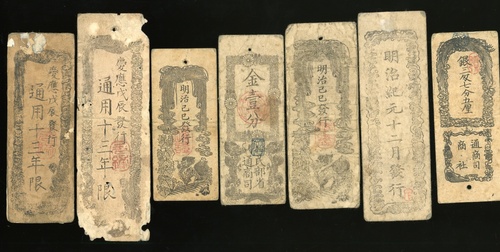 慶應戊辰發行
通用十三年限
慶應戊辰發行
通用十三年限
明治己巳發行
金壹分
民部省
通商司
明治己巳發行
明治紀元十二月發行
通商司
商社